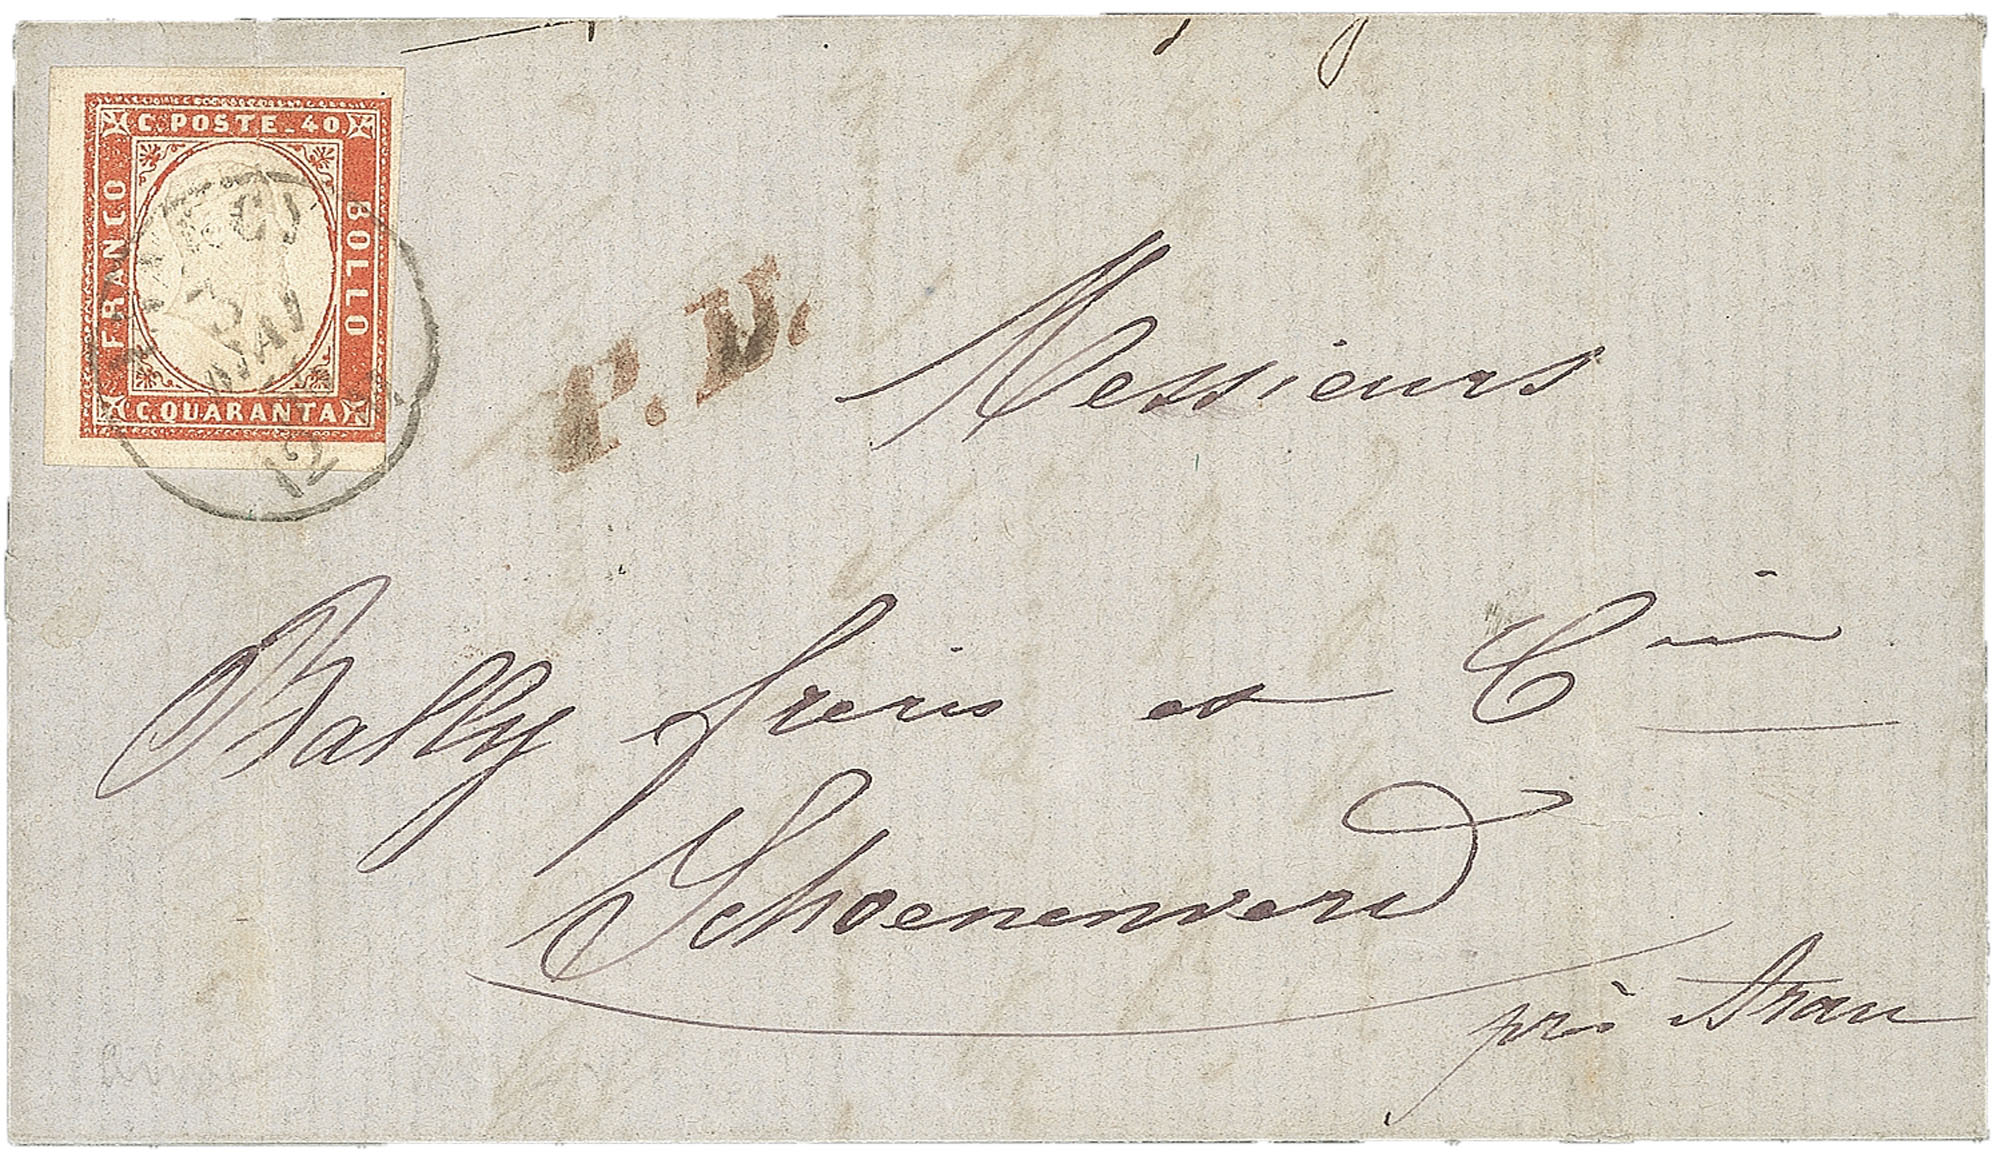 C. POSTE. 40
FRANCO
BOLLO
C. QUARANTA
3
12
P. D.
Messieurs
Bally freres et Cie
Schoenenverd
près Arau